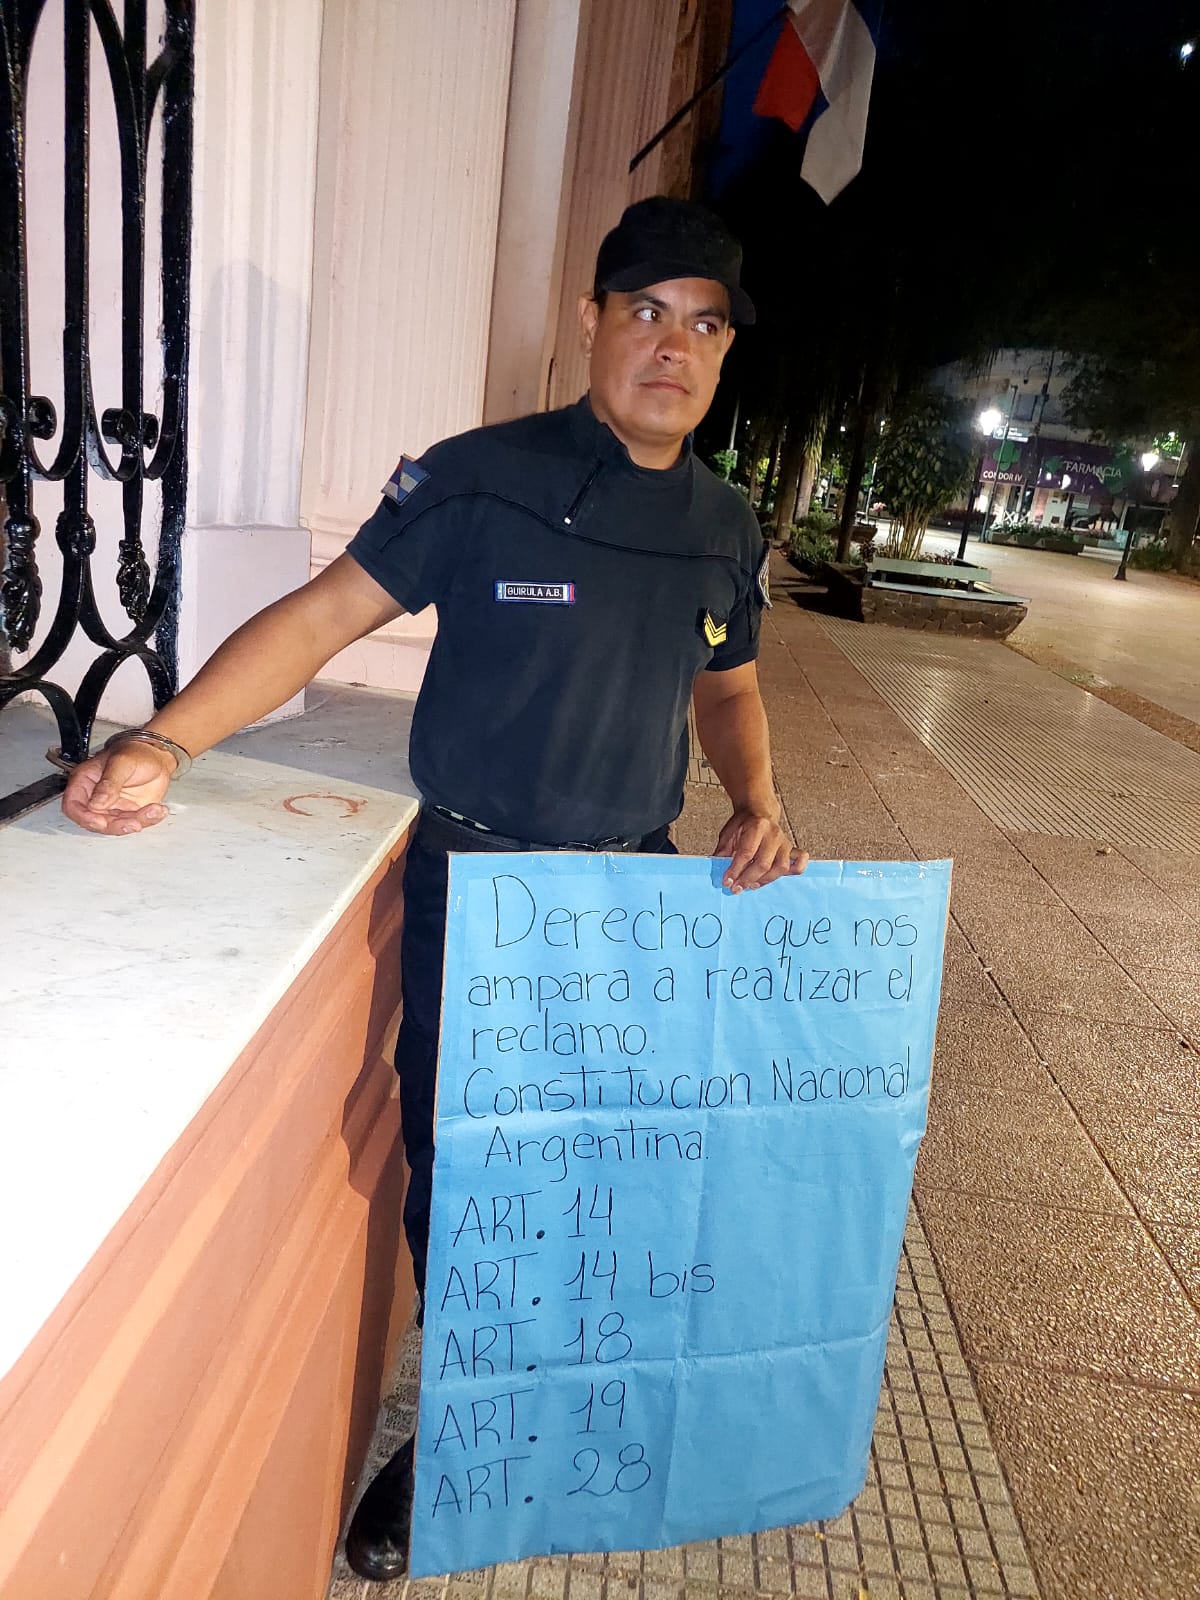 FARMACIA
CONDOR IV
GUIRULA A.B.
Derecho que nos
ampara a realizar el
reclamo.
Constitucion Nacional
Argentina.
ART. 14
ART. 14 bis
ART. 18
ART. 19
ART. 28